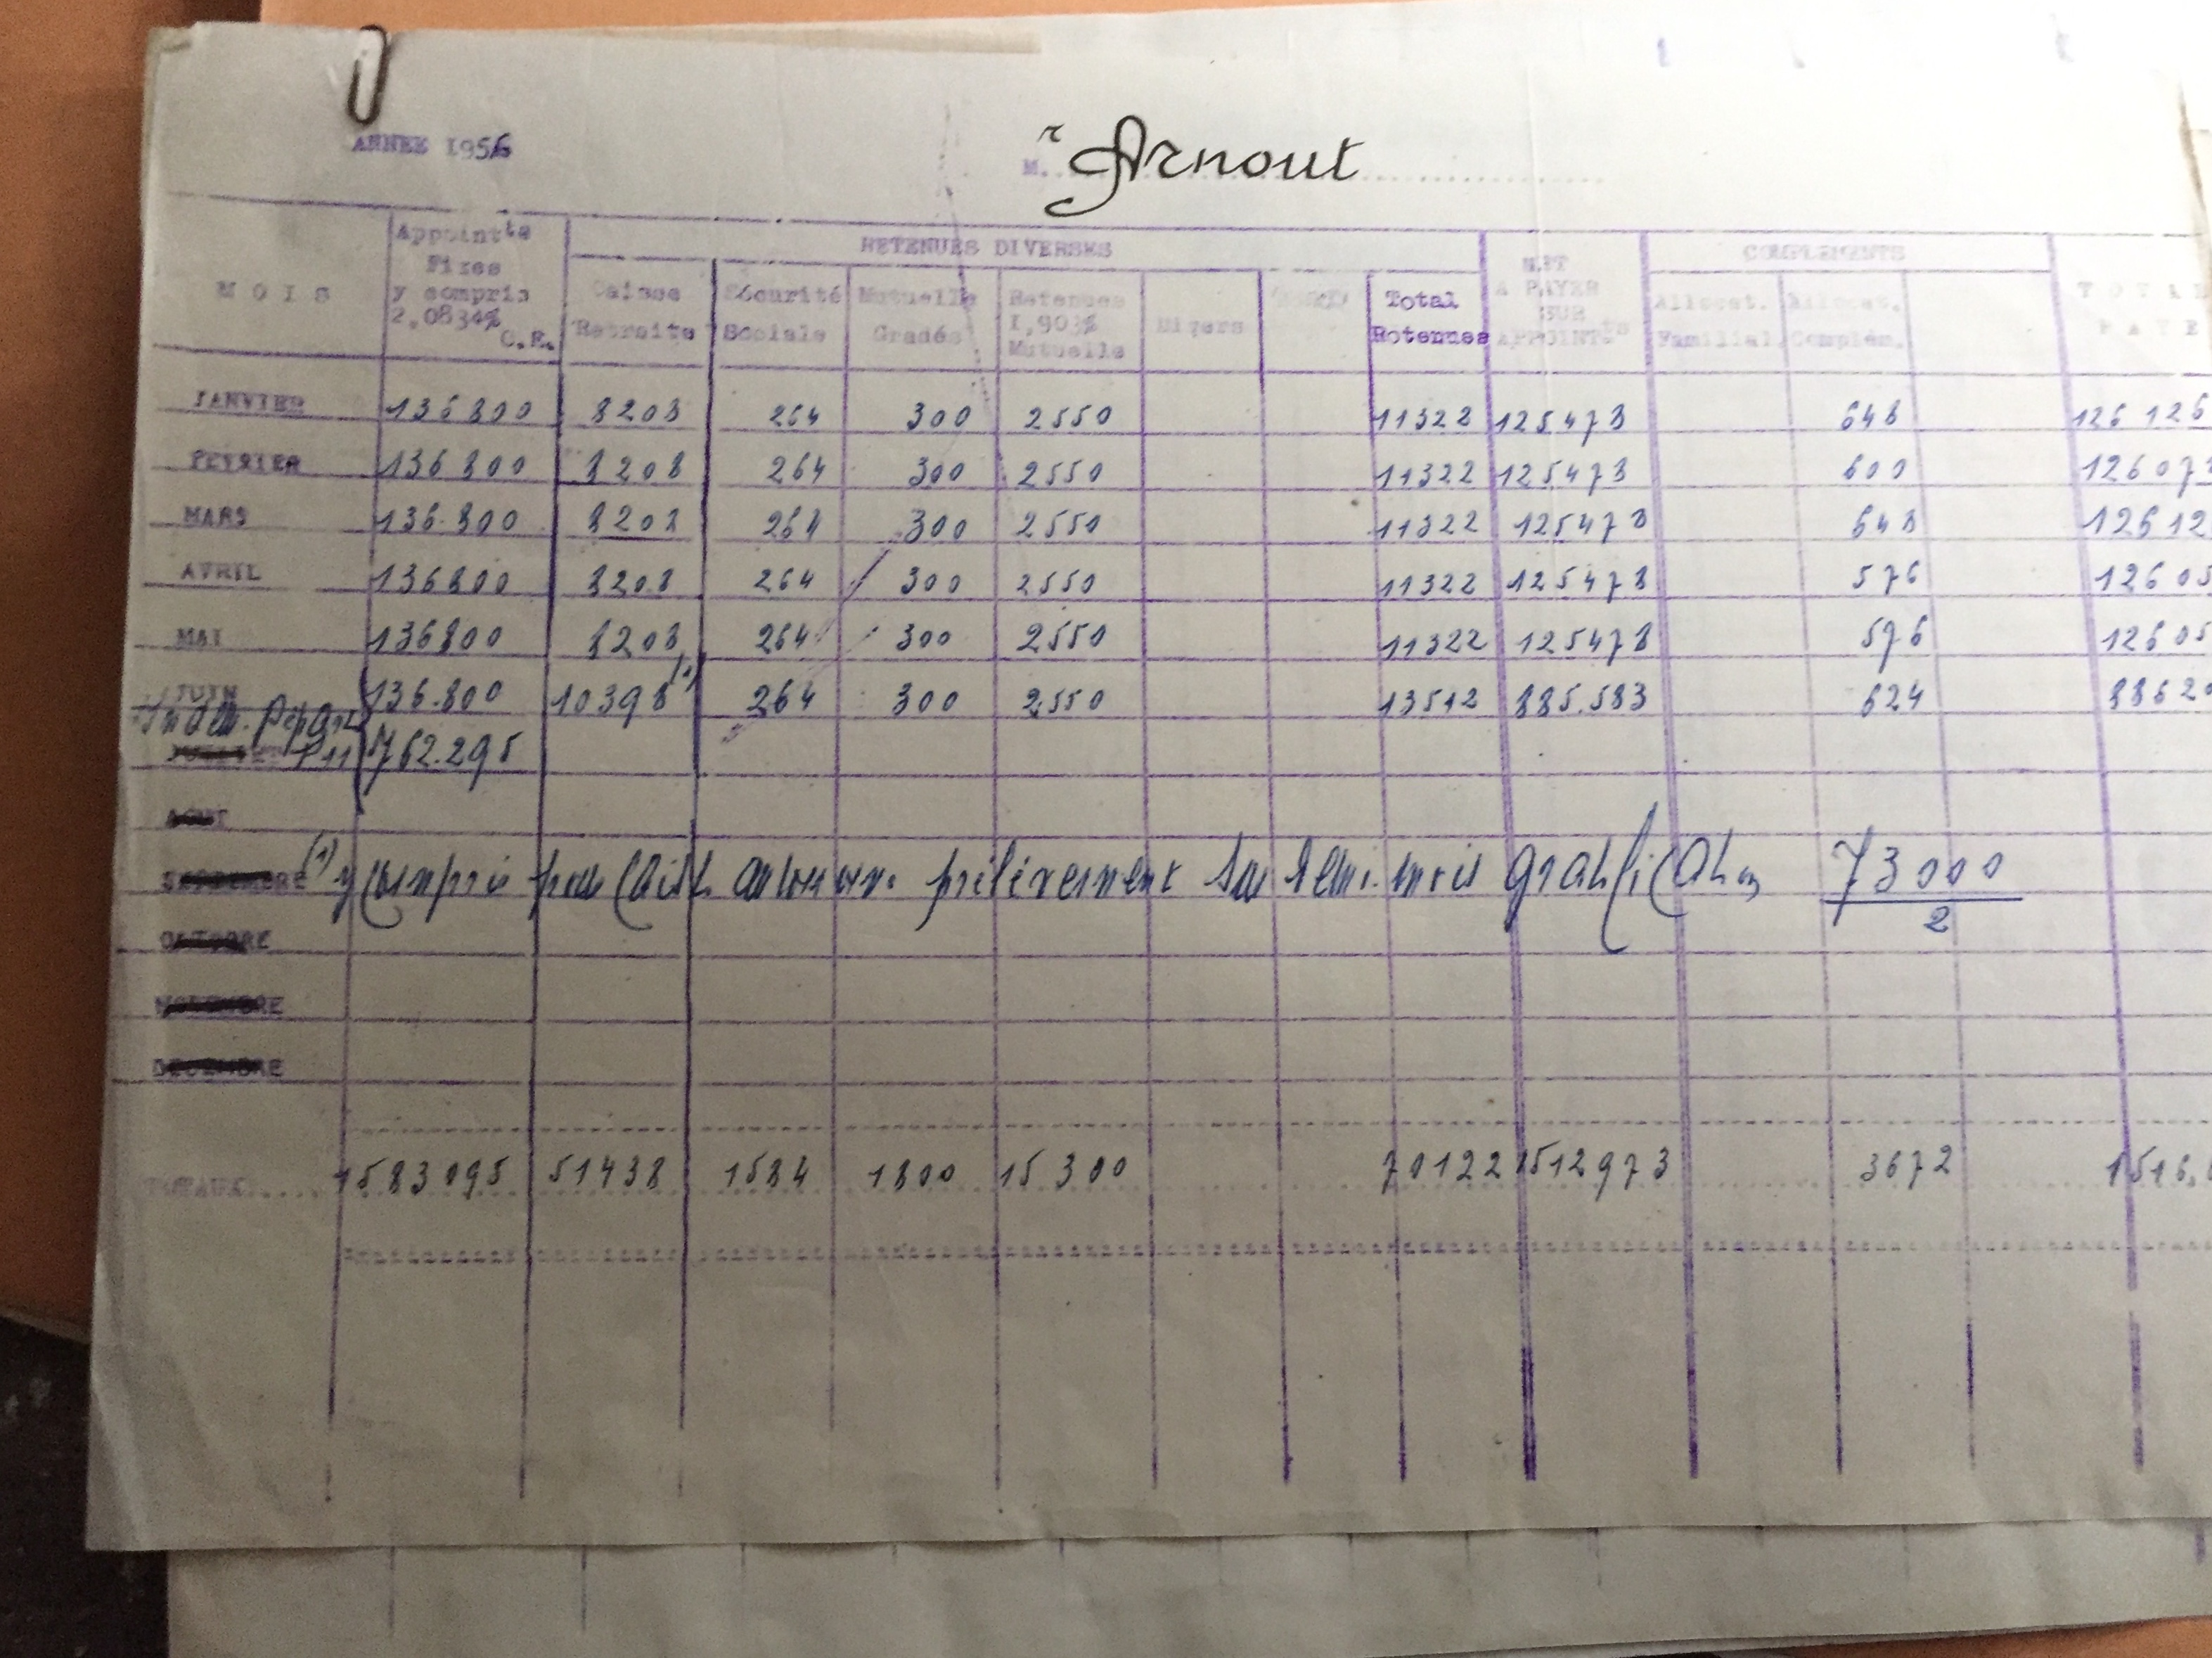 ANNEE 1956
M. r Arnout
MOIS
Appointts Fixes y compris 2,0834% O.E.
RETENUES DIVERSES
Caisse Retraite
Sécurité Sociale
Mutuelle Gradés
Retenues 1,903% Mutuelle
Divers
Total Retenues
NET A PAYER SUR APPOINTts
COMPLEMENTS
Allocat. Familial.
Allocat. Complém.
JANVIER 136800 8208 264 300 2550 11322 125478 648 126126
FEVRIER 136800 8208 264 300 2550 11322 125478 600 12607
MARS 136.800 8208 264 300 2550 11322 125478 648 12612
AVRIL 136800 8208 264 300 2550 11322 125478 576 12605
MAI 136800 8208 264 300 2550 11322 125478 576 12605
JUIN 136.800 10398 (1) 264 300 2550 13512 885.583 624 8862
Indem. Départ
JUILLET 762.295
AOUT
SEPTEMBRE (1) y compris pour Caisse autonome prélèvement sur demi-mois gratification 73000
2
OCTOBRE
NOVEMBRE
DECEMBRE
TOTAUX.... 1583095 51438 1584 1800 15300 70122 1512973 3672 1516.